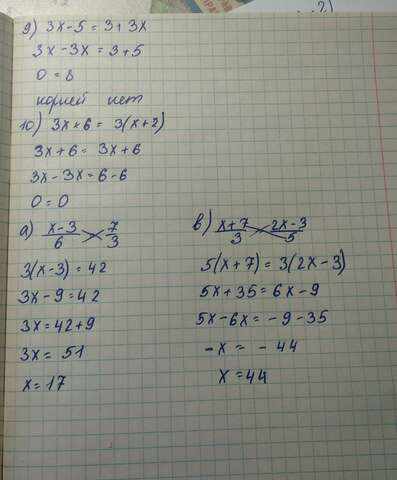 9) 3x-5=3+3x
3x-3x=3+5
0=8
корней нет
10) 3x+6= 3(x+2)
3x+6= 3x+6
3x-3x=6-6
0=0
а) (x-3)/6 = 7/3
3(x-3)=42
3x-9=42
3x=42+9
3x= 51
x=17
в) (x+7)/3 = (2x-3)/5
5(x+7)=3(2x-3)
5x+35=6x-9
5x-6x= -9-35
-x= -44
x=44